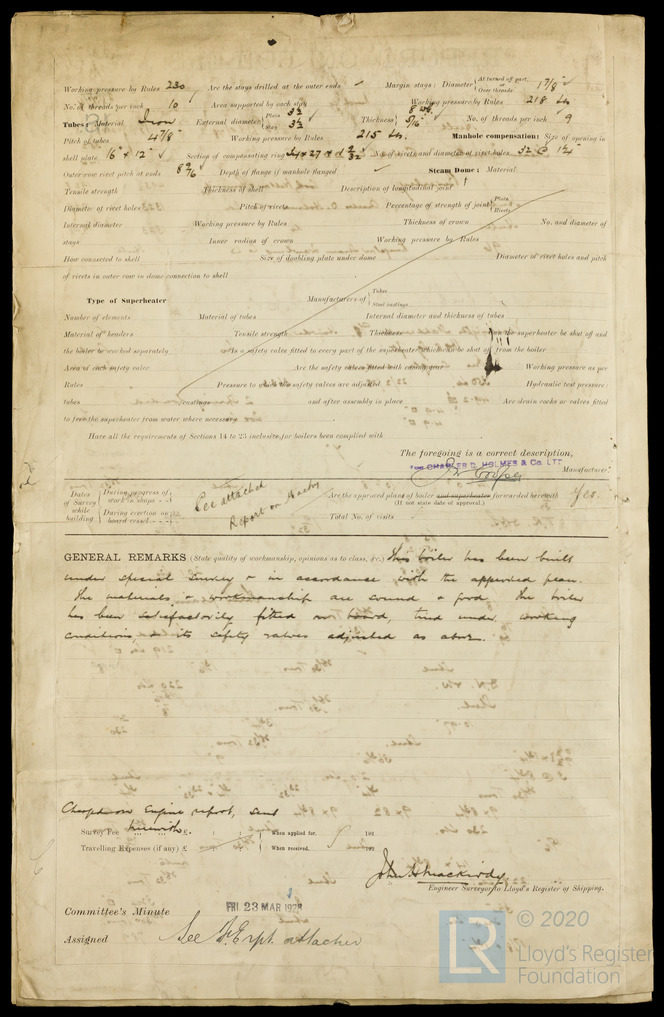 Working pressure by Rules 230 Are the stays drilled at the outer ends Margin stays: Diameter { At turned off part, or Over threads 1 7/8"
No. of threads per inch 10 Area supported by each stay Working pressure by Rules 218 lbs
Tubes: Material Iron External diameter { Plain 3½ Stay 3½ Thickness { 8 WG 5/16" No. of threads per inch 9
Pitch of tubes 4 7/8" Working pressure by Rules 215 lbs. Manhole compensation: Size of opening in
shell plate 16" x 12" Section of compensating ring No. of rivets and diameter of rivet holes 32 @ 1¼"
Outer row rivet pitch at ends 8 9/16 Depth of flange if manhole flanged Steam Dome: Material
Tensile strength Thickness of shell Description of longitudinal joint
Diameter of rivet holes Pitch of rivets Percentage of strength of joint { Plate Rivets
Internal diameter Working pressure by Rules Thickness of crown No. and diameter of
stays Inner radius of crown Working pressure by Rules
How connected to shell Size of doubling plate under dome Diameter of rivet holes and pitch
of rivets in outer row in dome connection to shell
Type of Superheater Manufacturers of { Tubes Steel castings
Number of elements Material of tubes Internal diameter and thickness of tubes
Material of headers Tensile strength Thickness Can the superheater be shut off and
the boiler be worked separately Is a safety valve fitted to every part of the superheater which can be shut off from the boiler
Area of each safety valve Are the safety valves fitted with easing gear Working pressure as per
Rules Pressure to which the safety valves are adjusted Hydraulic test pressure:
tubes castings and after assembly in place Are drain cocks or valves fitted
to free the superheater from water where necessary
Have all the requirements of Sections 14 to 25 inclusive for boilers been complied with
The foregoing is a correct description,
FOR CHARLES D. HOLMES & Co. LTD Manufacturer.
J W Cooper
Dates of Survey while building { During progress of work in shops - - During erection on board vessel - - - See attached Report on Machy Are the approved plans of boiler and superheater forwarded herewith Yes.
(If not state date of approval.)
Total No. of visits
GENERAL REMARKS (State quality of workmanship, opinions as to class, &c.) This boiler has been built
under special survey & in accordance with the approved plan.
The materials & workmanship are sound & good. The boiler
has been satisfactorily fitted on board, tried under working
conditions & its safety valves adjusted as above.
Charged on Engine report, sent
Survey Fee herewith £ : : When applied for, 192
Travelling Expenses (if any) £ : : When received, 192
John H Mackirdy
Engineer Surveyor to Lloyd's Register of Shipping.
Committee's Minute FRI 23 MAR 1928
Assigned See F.E. rpt. attached
© 2020
LR Lloyd's Register
Foundation